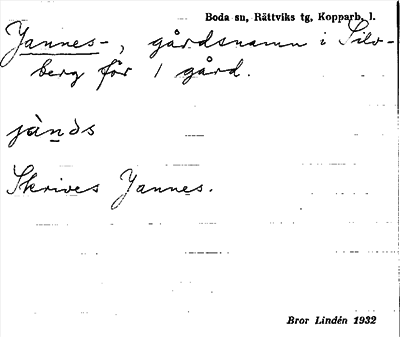 Boda sn, Rättviks tg, Kopparb. l.
Jannes-, gårdsnamn i Silv-
berg för 1 gård.
jànds
Skrives Jannes.
Bror Lindén 1932